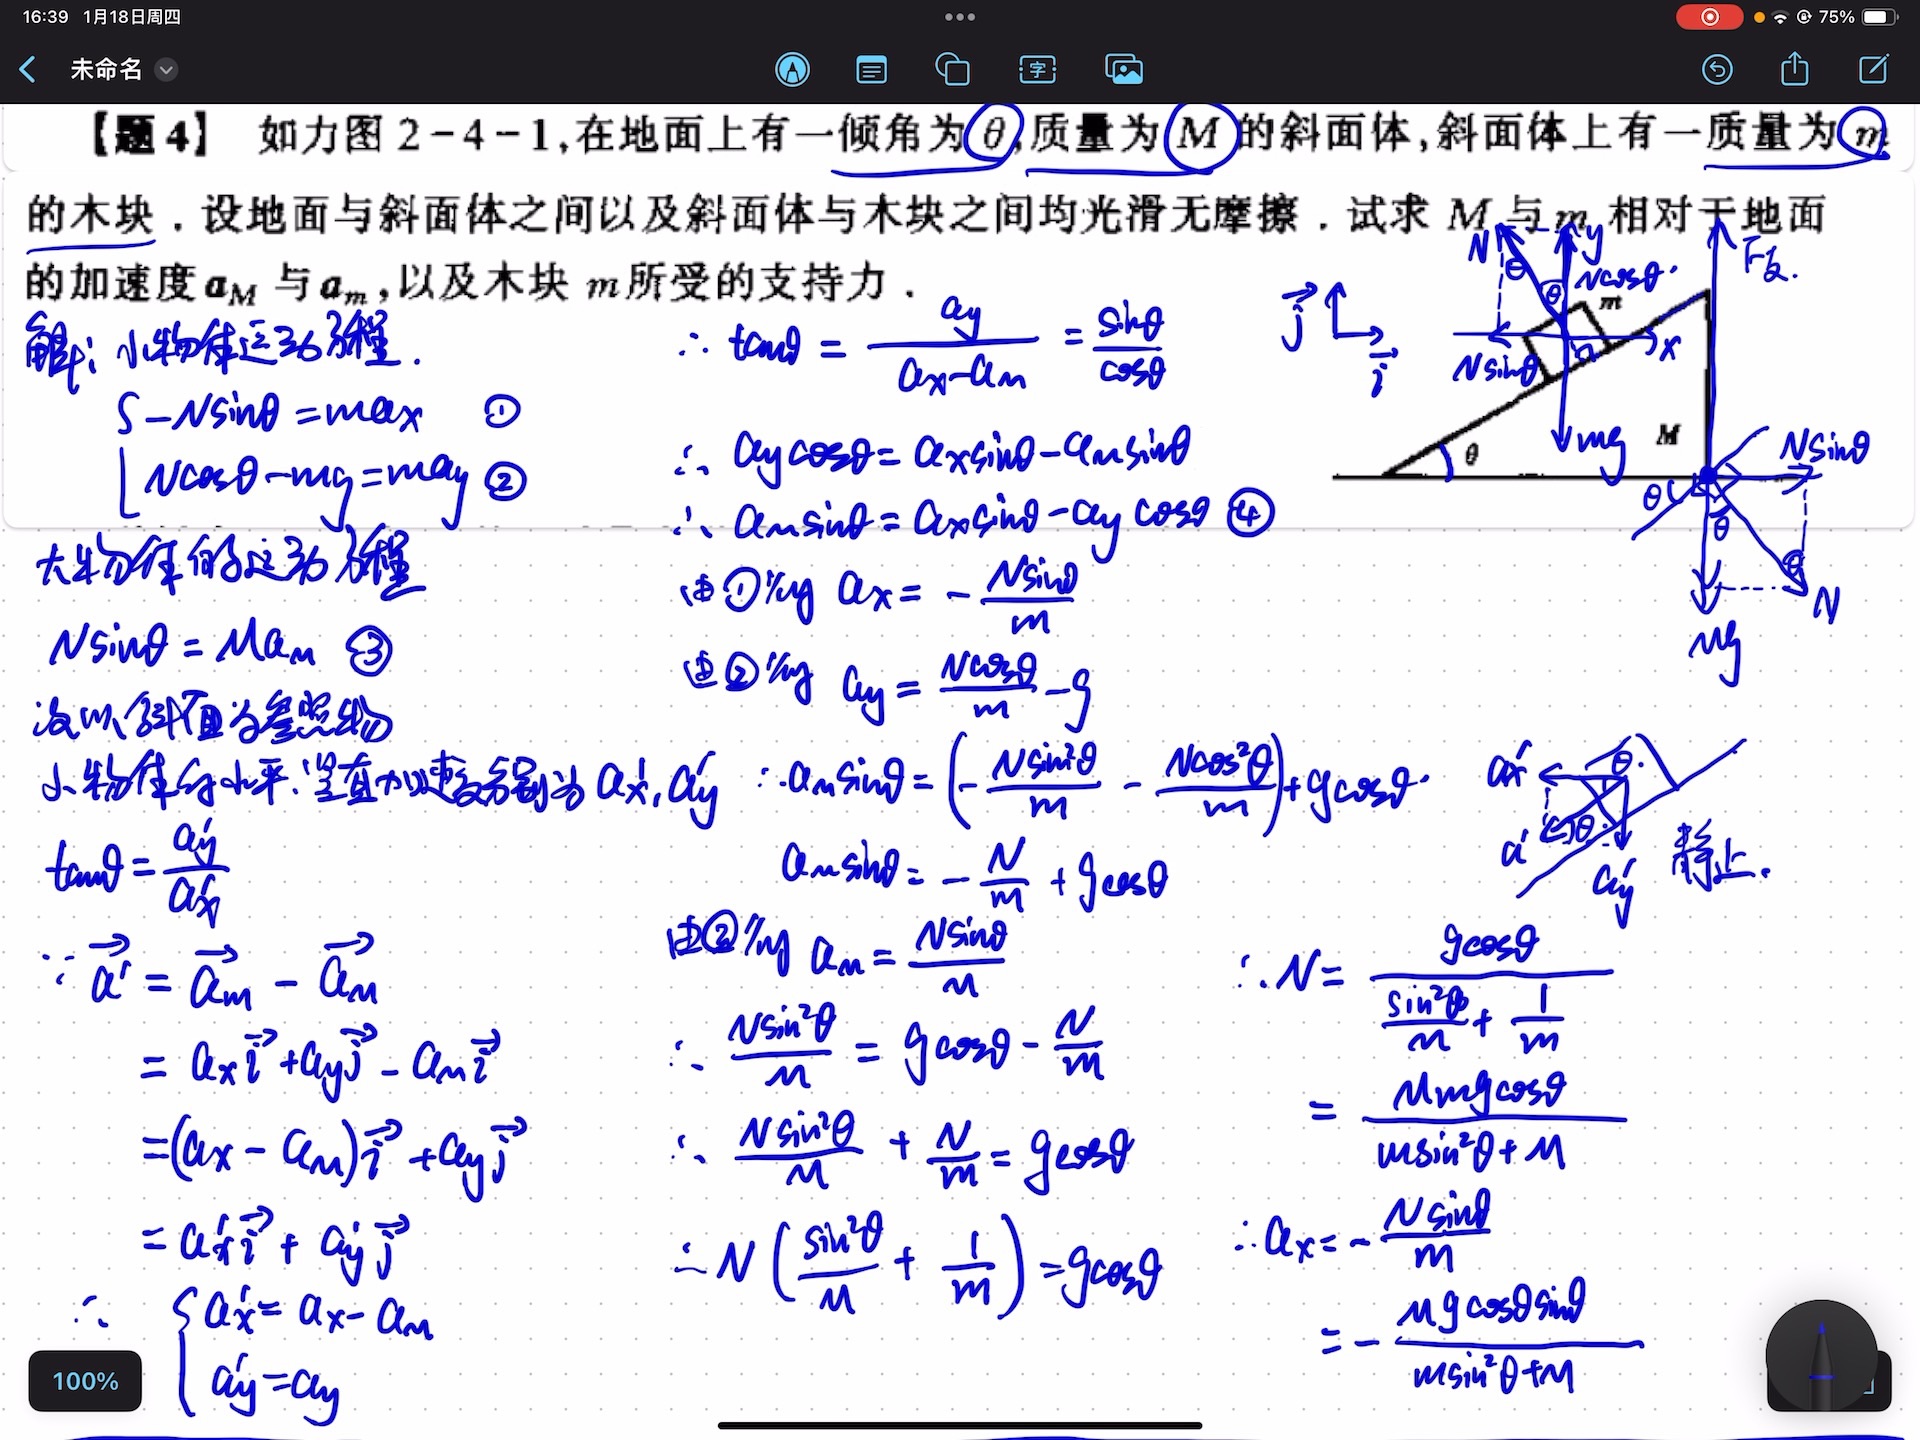 16:39 1月18日周四
75%
未命名
【题4】 如力图2-4-1,在地面上有一倾角为θ,质量为M的斜面体,斜面体上有一质量为m
的木块.设地面与斜面体之间以及斜面体与木块之间均光滑无摩擦.试求M与m相对于地面
的加速度a_M与a_m,以及木块m所受的支持力.
解:小物体运动方程.
{ -Nsinθ=ma_x ①
Ncosθ-mg=ma_y ②
大物体的运动方程
Nsinθ=Ma_M ③
设以斜面为参照物
小物体的水平、竖直加速度分别为a_x′,a_y′
tanθ=a_y′/a_x′
∵ a⃗′=a⃗_m-a⃗_M
=a_x i⃗+a_y j⃗-a_M i⃗
=(a_x-a_M)i⃗+a_y j⃗
=a_x′ i⃗+a_y′ j⃗
∴ { a_x′=a_x-a_M
a_y′=a_y
∴ tanθ=a_y/(a_x-a_M)=sinθ/cosθ
∴ a_y cosθ=a_x sinθ-a_M sinθ
∴ a_M sinθ=a_x sinθ-a_y cosθ ④
由①可得 a_x=-Nsinθ/m
由②可得 a_y=Ncosθ/m-g
∴ a_M sinθ=(-Nsin²θ/m-Ncos²θ/m)+gcosθ
a_M sinθ=-N/m+gcosθ
由②可得 a_M=Nsinθ/M
∴ Nsin²θ/M=gcosθ-N/m
∴ Nsin²θ/M+N/m=gcosθ
∴ N(sin²θ/M+1/m)=gcosθ
j⃗
i⃗
N
θ
θ
y
Ncosθ
m
x
Nsinθ
mg
F支
M
θ
Nsinθ
θ
θ
θ
N
Mg
a_x′
θ
θ
a′
a_y′
静止.
∴ N=gcosθ/(sin²θ/M+1/m)
=Mmgcosθ/(msin²θ+M)
∴ a_x=-Nsinθ/m
=-Mgcosθsinθ/(msin²θ+M)
100%